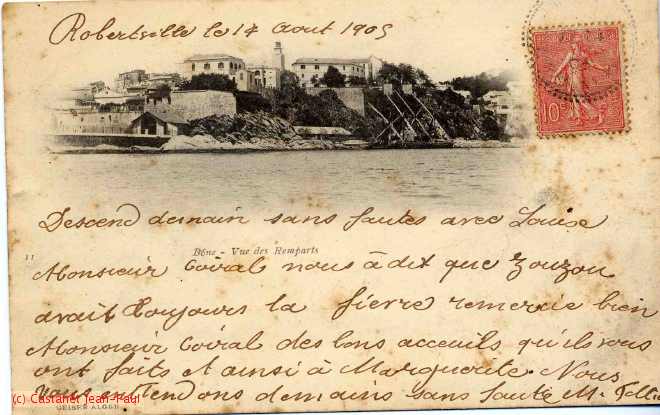 Robertville le 14 Aout 1905
10
Descend demain sans fautes avec Louise
11
Bône - Vue des Remparts
Monsieur Coiral nous à dit que Zouzou
avait toujours la fievre remercie bien
Monsieur Coiral des bons acceuils qu'ils vous
ont faits et ainsi à Marguerite. Nous
vous attendons demains sans faute M.
(c) Castanet Jean-Paul
GEISER ALGER